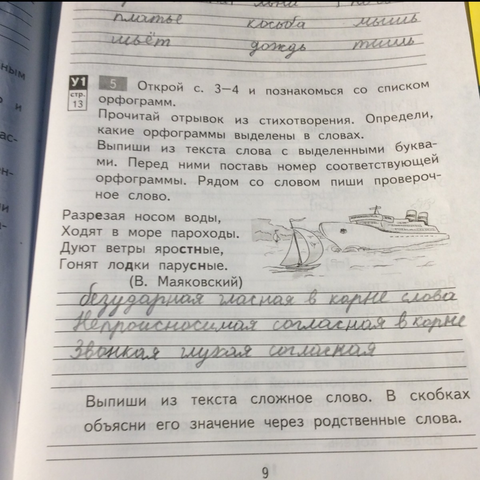 платье косьба мышь
шьёт дождь тишь
У1 стр. 13
5 Открой с. 3—4 и познакомься со списком
орфограмм.
Прочитай отрывок из стихотворения. Определи,
какие орфограммы выделены в словах.
Выпиши из текста слова с выделенными буква-
ми. Перед ними поставь номер соответствующей
орфограммы. Рядом со словом пиши провероч-
ное слово.
Разрезая носом воды,
Ходят в море пароходы.
Дуют ветры яростные,
Гонят лодки парусные.
(В. Маяковский)
безударная гласная в корне слова
Непроисносимая согласная в корне
Звонкая глухая согласная
Выпиши из текста сложное слово. В скобках
объясни его значение через родственные слова.
9